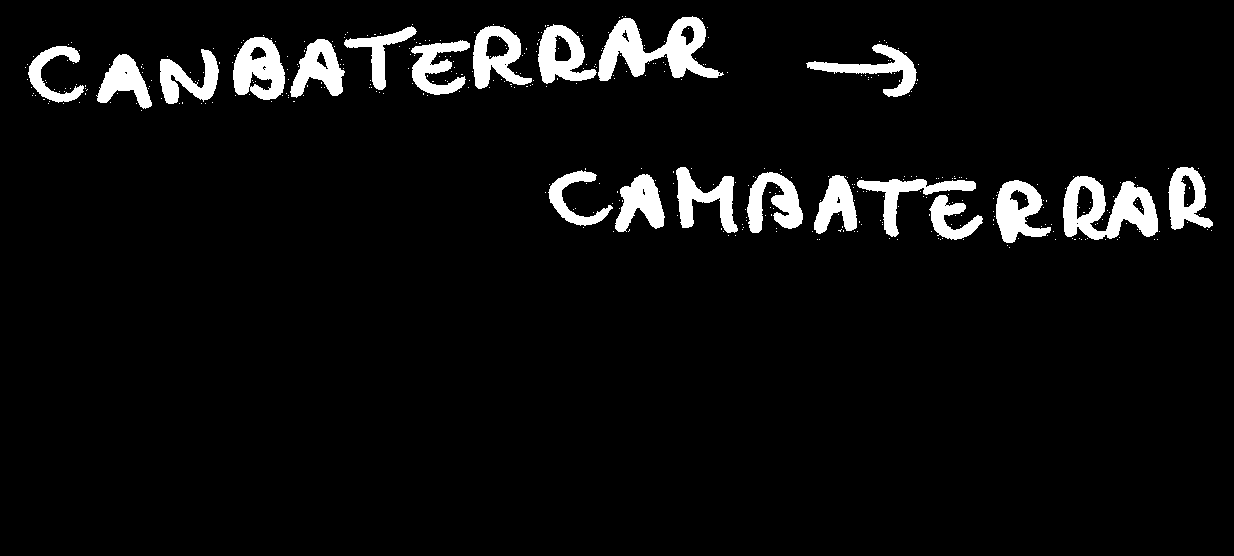 CANBATERRAR →
CAMBATERRAR